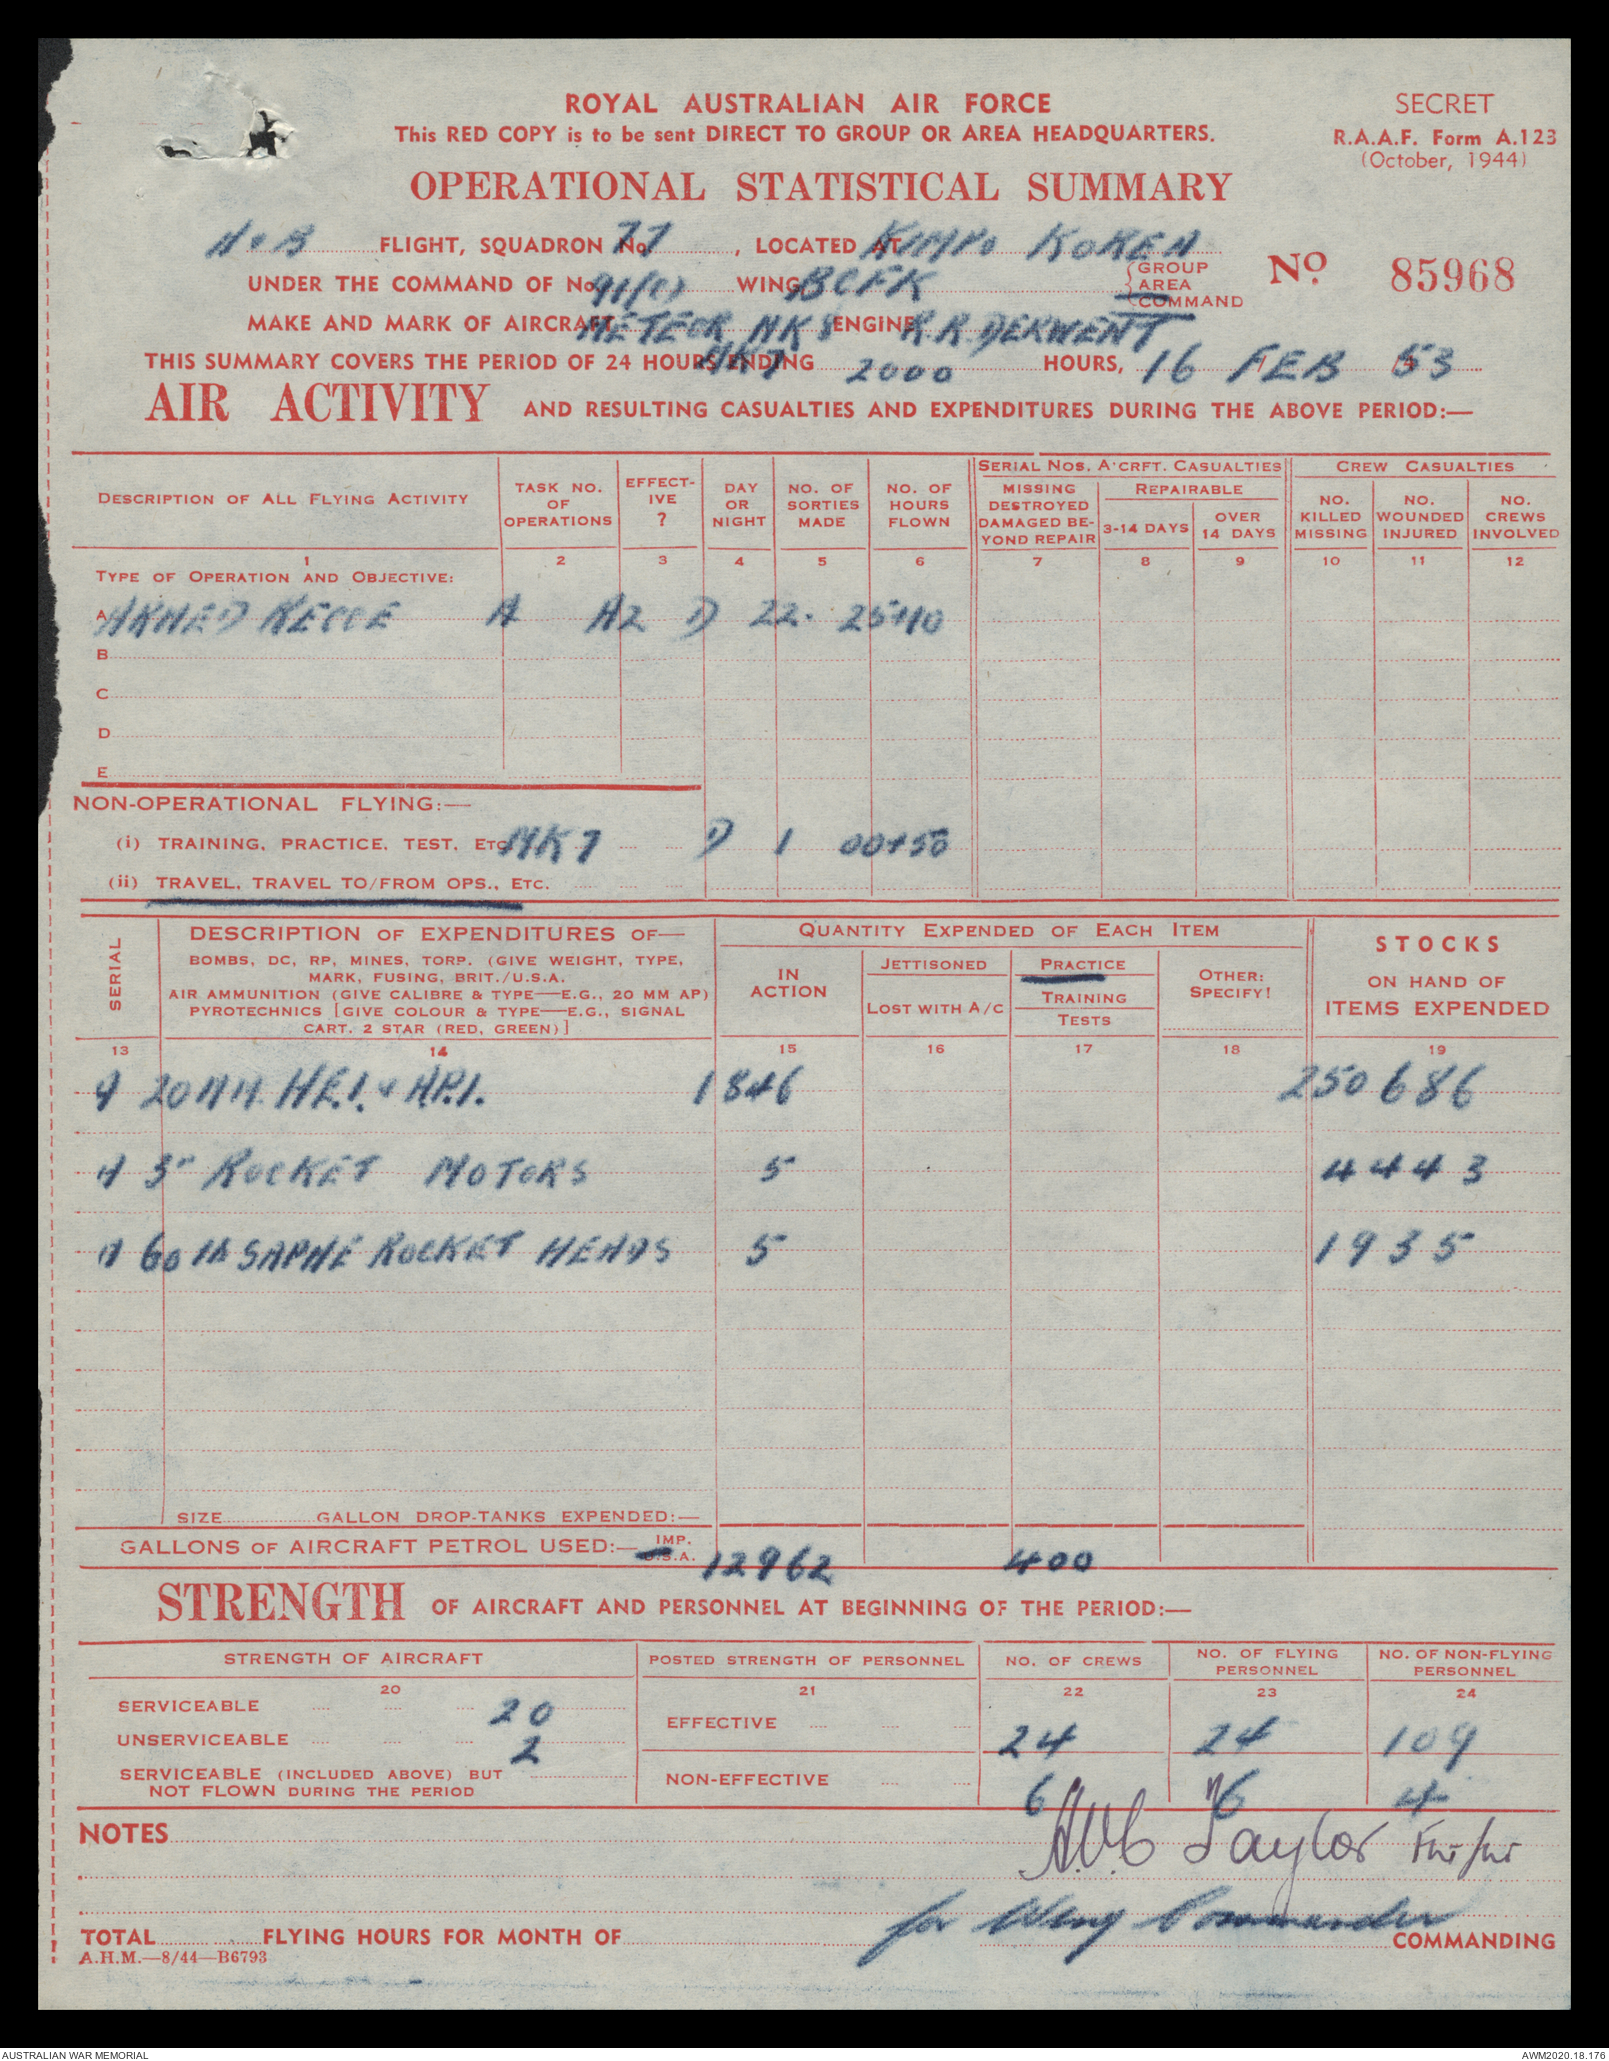 ROYAL AUSTRALIAN AIR FORCE
SECRET
This RED COPY is to be sent DIRECT TO GROUP OR AREA HEADQUARTERS.
R.A.A.F. Form A.123
(October, 1944)
OPERATIONAL STATISTICAL SUMMARY
A & B FLIGHT, SQUADRON No. 77, LOCATED AT KIMPO KOREA
UNDER THE COMMAND OF No. 91(C) WING, BCFK {GROUP AREA COMMAND
No. 85968
MAKE AND MARK OF AIRCRAFT METEOR MK 8 ENGINE R.R. DERWENT
MK 7
THIS SUMMARY COVERS THE PERIOD OF 24 HOURS ENDING 2000 HOURS, 16 FEB 53
AIR ACTIVITY AND RESULTING CASUALTIES AND EXPENDITURES DURING THE ABOVE PERIOD:—
DESCRIPTION OF ALL FLYING ACTIVITY
TASK NO. OF OPERATIONS
EFFECT-IVE ?
DAY OR NIGHT
NO. OF SORTIES MADE
NO. OF HOURS FLOWN
SERIAL NOS. A'CRFT. CASUALTIES
MISSING DESTROYED DAMAGED BE-YOND REPAIR
REPAIRABLE
3-14 DAYS
OVER 14 DAYS
CREW CASUALTIES
NO. KILLED MISSING
NO. WOUNDED INJURED
NO. CREWS INVOLVED
1 2 3 4 5 6 7 8 9 10 11 12
TYPE OF OPERATION AND OBJECTIVE:
A ARMED RECCE A A2 D 22. 25+10
B
C
D
E
NON-OPERATIONAL FLYING:—
(i) TRAINING, PRACTICE, TEST, ETC. MK 7 D 1 00+50
(ii) TRAVEL, TRAVEL TO/FROM OPS., ETC.
SERIAL
DESCRIPTION OF EXPENDITURES OF—
BOMBS, DC, RP, MINES, TORP. (GIVE WEIGHT, TYPE,
MARK, FUSING, BRIT./U.S.A.
AIR AMMUNITION (GIVE CALIBRE & TYPE—E.G., 20 MM AP)
PYROTECHNICS [GIVE COLOUR & TYPE—E.G., SIGNAL
CART. 2 STAR (RED, GREEN)]
QUANTITY EXPENDED OF EACH ITEM
IN ACTION
JETTISONED
LOST WITH A/C
PRACTICE
TRAINING
TESTS
OTHER: SPECIFY!
STOCKS
ON HAND OF
ITEMS EXPENDED
13 14 15 16 17 18 19
A 20 MM. H.E.I. & A.P.I. 1846 250686
A 3" ROCKET MOTORS 5 4443
A 60 lb SAPHE ROCKET HEADS 5 1935
SIZE GALLON DROP-TANKS EXPENDED:—
GALLONS OF AIRCRAFT PETROL USED:— IMP. U.S.A. 12962 400
STRENGTH OF AIRCRAFT AND PERSONNEL AT BEGINNING OF THE PERIOD:—
STRENGTH OF AIRCRAFT
POSTED STRENGTH OF PERSONNEL
NO. OF CREWS
NO. OF FLYING PERSONNEL
NO. OF NON-FLYING PERSONNEL
20 21 22 23 24
SERVICEABLE 20
UNSERVICEABLE 2
SERVICEABLE (INCLUDED ABOVE) BUT
NOT FLOWN DURING THE PERIOD
EFFECTIVE 24 24 109
NON-EFFECTIVE 6 6 4
NOTES
Taylor
for Wing Commander
TOTAL FLYING HOURS FOR MONTH OF
COMMANDING
A.H.M.—8/44—B6793
AUSTRALIAN WAR MEMORIAL
AWM2020.18.176